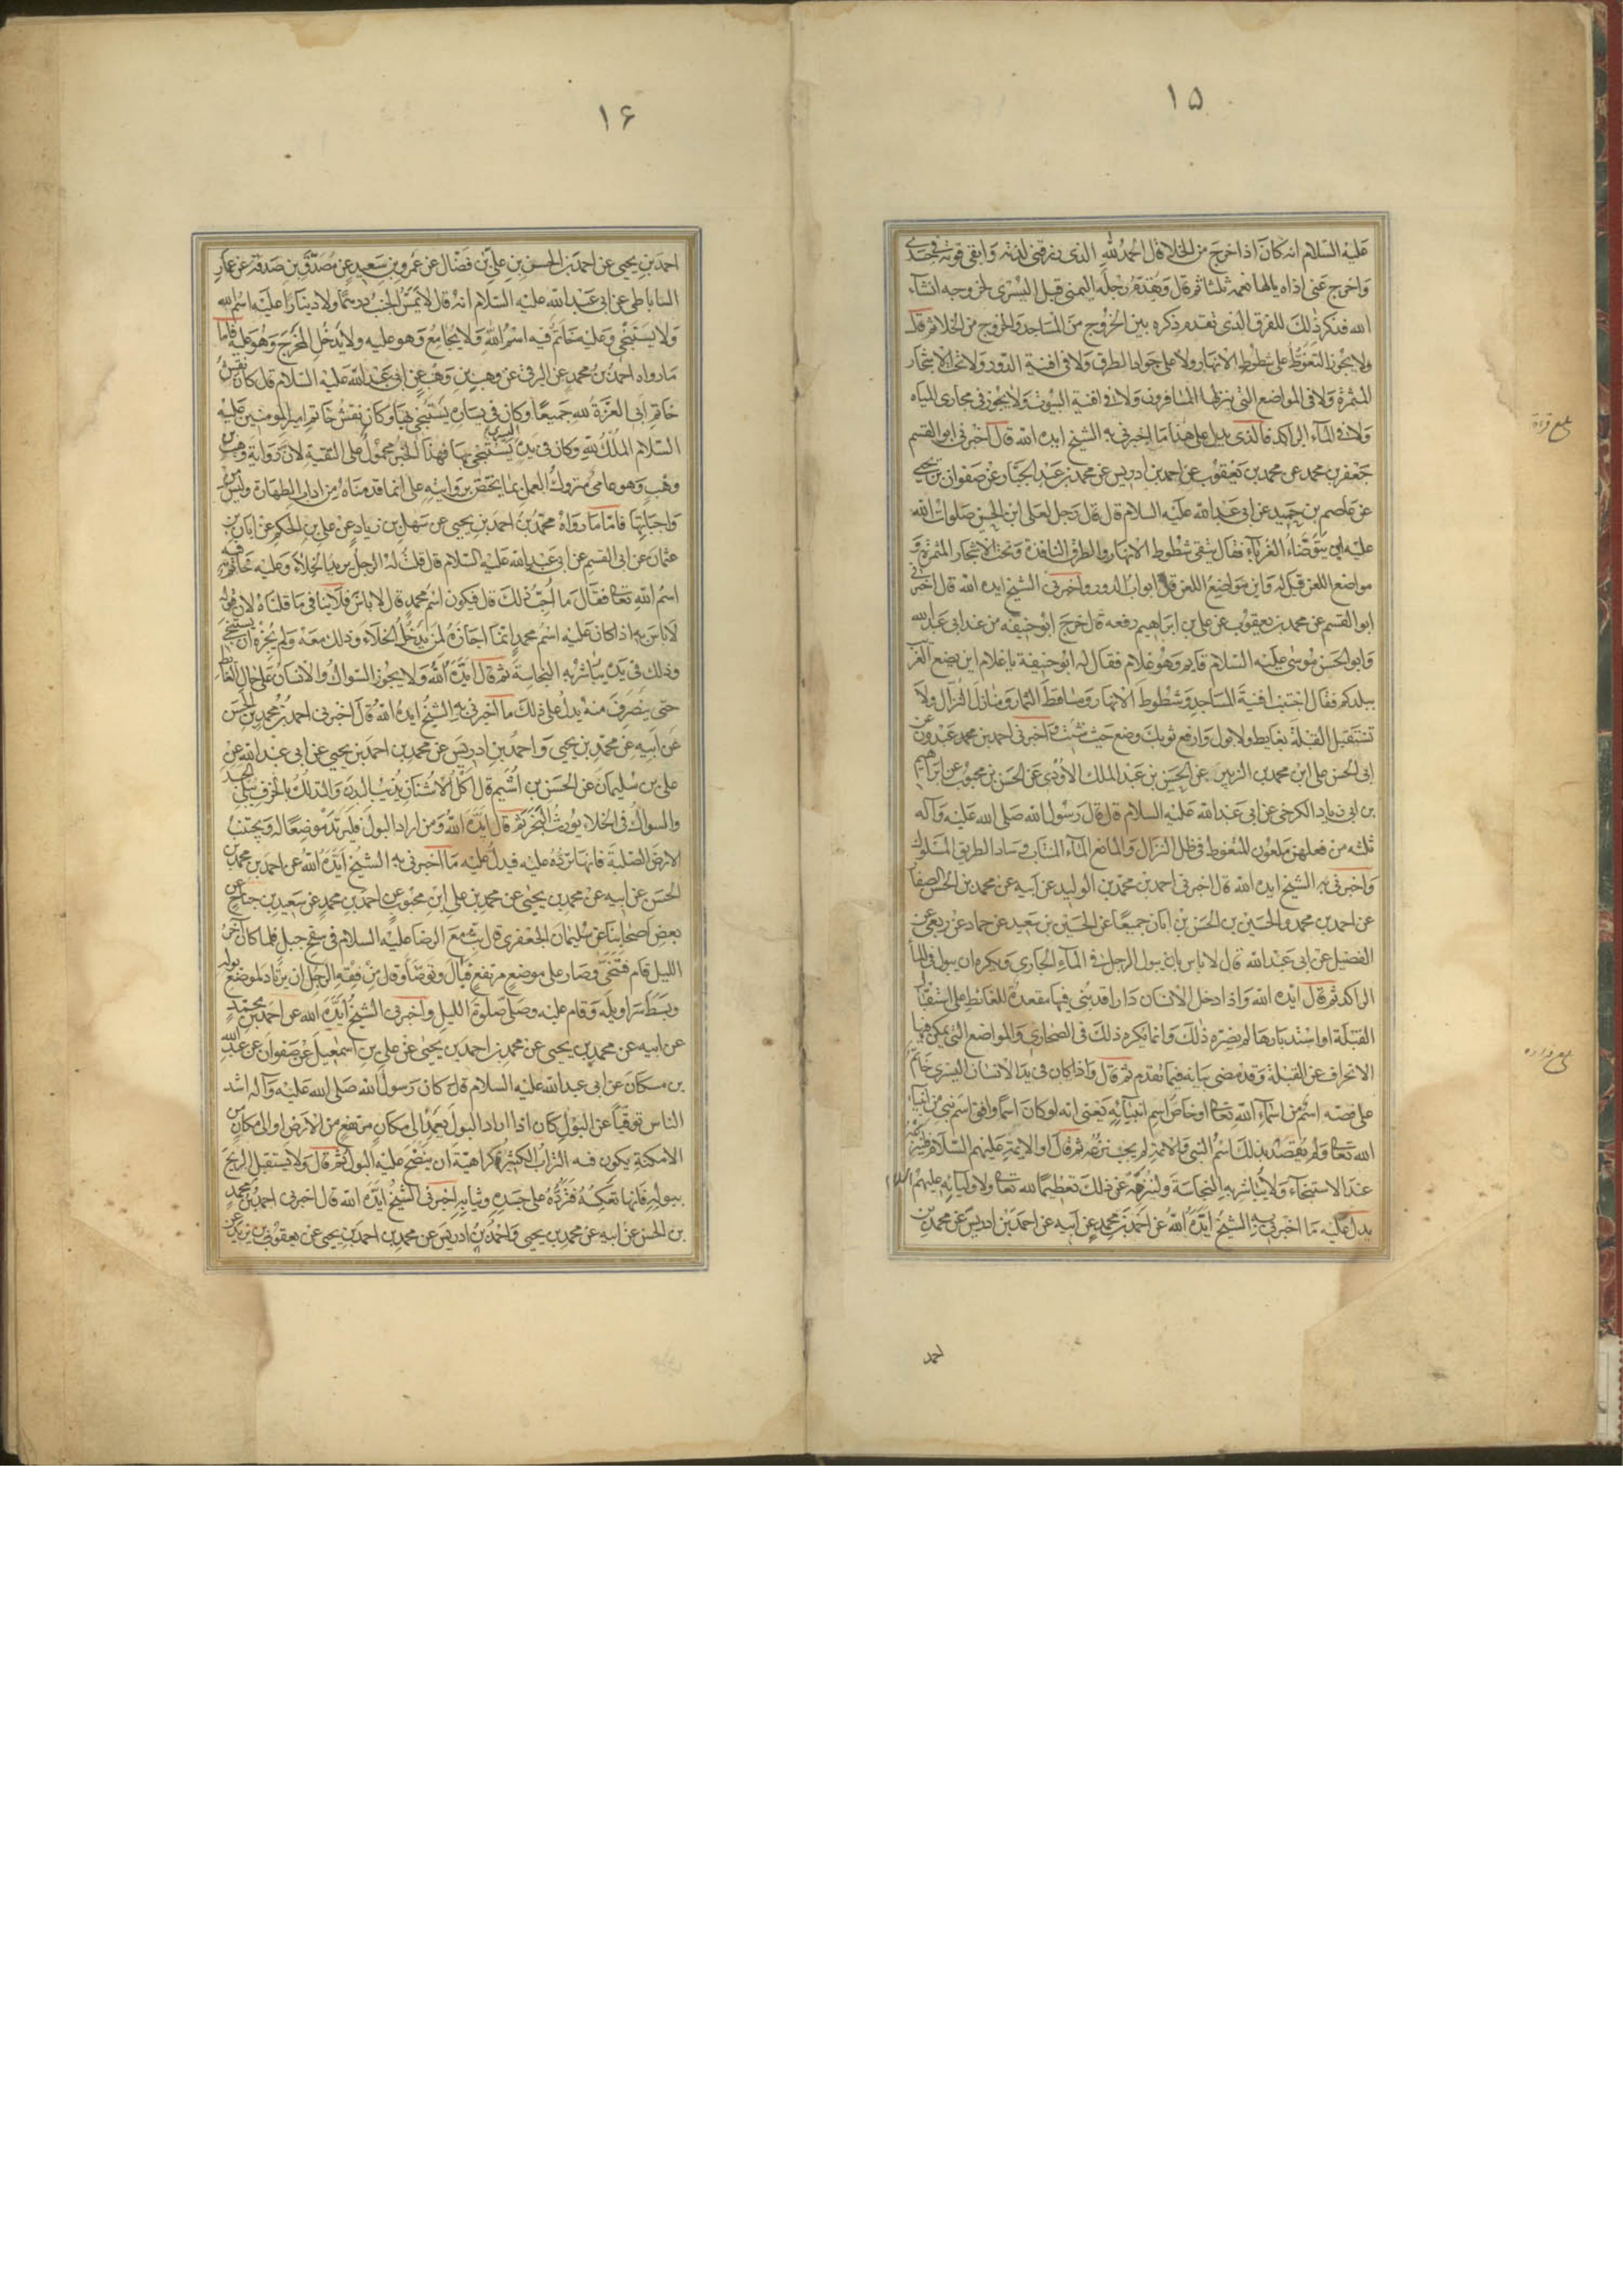 ١٥
عليه السلام انه كان اذا خرج من الخلاء قال الحمد لله الذى رزقنى لذته وابقى قوته فى جسدى
واخرج عنى اذاه يالها نعمه ثلثا ثم قال ويقدم رجله اليمنى قبل اليسرى لخروجه انشاء
الله فنذكر ذلك للفرق الذى تقدم ذكره بين الخروج من المساجد والخروج من الخلا ثم قال
ولا يجوز التغوط على شطوط الانهار ولا على جواد الطرق ولا فى افنية الدور ولا تحت الاشجار
المثمرة ولا فى المواضع التى ينزلها المسافرون ولا فى افنية البيوت ولا يجوز فى مجارى المياه
ولا فى الماء الراكد فالذى يدل على هذا ما اخبرنى به الشيخ ايده الله قال اخبرنى ابو القسم
جعفر بن محمد عن محمد بن يعقوب عن احمد بن ادريس عن محمد بن عبد الجبار عن صفوان بن يحيى
عن عاصم بن حميد عن ابى عبد الله عليه السلام قال قال رجل لعلى ابن الحسن صلوات الله
عليه اين يتوضاء الغرباء فقال يتقى شطوط الانهار والطرق النافذة وتحت الاشجار المثمرة و
مواضع اللعن قيل له واين مواضع اللعن قال ابواب الدور واخبرنى الشيخ ايده الله قال اخبرنى
ابو القسم عن محمد بن يعقوب عن على بن ابراهيم رفعه قال خرج ابو حنيفه من عند ابى عبد الله
وابو الحسن موسى عليه السلام قايم وهو غلام فقال له ابو حنيفة يا غلام اين يضع الغريب
ببلدكم فقال اجتنب افنية المساجد وشطوط الانهار ومساقط الثمار ومنازل النزال ولا
تستقبل القبلة بغايط ولا بول وارفع ثوبك وضع حيث شئت واخبرنى احمد بن محمد عبدون عن
ابى الحسن على ابن محمد بن الزبير عن الحسين بن عبد الملك الاودى عن الحسن بن محبوب عن ابراهيم
بن ابى زياد الكرخى عن ابى عبد الله عليه السلام قال قال رسول الله صلى الله عليه وآله
ثلثه من فعلهن ملعون المتغوط فى ظل النزال والمانع الماء المنتاب وساد الطريق المسلوك
واخبرنى به الشيخ ايده الله قال اخبرنى احمد بن محمد بن الوليد عن ابيه عن محمد بن الحسن الصفار
عن احمد بن محمد والحسين بن الحسن بن ابان جميعا عن الحسين بن سعيد عن حماد عن ربعى عن
الفضيل عن ابى عبد الله قال لا باس بان يبول الرجل فى الماء الجارى ويكره ان يبول فى الماء
الراكد ثم قال ايده الله واذا دخل الانسان دارا قد بنى فيها مقعدة للغائط على استقبال
القبلة او استدبارها لم يضره ذلك وانما يكره ذلك فى الصحارى والمواضع التى يمكن فيها
الانحراف عن القبلة وقد مضى بيانه فيما تقدم ثم قال واذا كان فى يد الانسان اليسرى خاتم
على فصه اسم من اسماء الله تعا او خاص اسم انبيائه يعنى انه لو كان اسما وافق اسم نبى من انبياء
الله تعا ولم يقصد بذلك اسم النبى والائمة لم يجب نزعه ثم قال او الايمة عليهم السلام فلينزعه
عند الاستنجاء ولا يباشر به النجاسة ولينزهه عن ذلك تعظيما لله تعا ولاوليائه عليهم السلام
يدل عليه ما اخبرنى به الشيخ ايده الله عن احمد بن محمد عن ابيه عن احمد بن ادريس عن محمد بن
احمد
١٦
احمد بن يحيى عن احمد بن الحسن بن على بن فضال عن عمرو بن سعيد عن مصدق بن صدقة عن عمار
الساباطى عن ابى عبد الله عليه السلام انه قال لا يمس الجنب درهما ولا دينارا عليه اسم الله
ولا يستنجى وعليه خاتم فيه اسم الله ولا يجامع وهو عليه ولا يدخل المخرج وهو عليه فاما
ما رواه احمد بن محمد عن البرقى عن وهب بن وهب عن ابى عبد الله عليه السلام قال كان نقش
خاتم ابى العزة لله جميعا وكان فى يساره يستنجى بها وكان نقش خاتم امير المومنين عليه
السلام الملك لله وكان فى يده اليسرى يستنجى بها فهذا الخبر محمول على التقية لان رواية وهب بن
وهب وهو عامى متروك العمل بما يختص بروايته على انما قدمناه من اداب الطهارة وليس من
واجباتها فاما ما رواه محمد بن احمد بن يحيى عن سهل بن زياد عن على بن الحكم عن ابان بن
عثمان عن ابى القسم عن ابى عبد الله عليه السلام قال قلت له الرجل يريد الخلاء وعليه خاتم فيه
اسم الله تعا فقال ما احب ذلك قال فيكون اسم محمد قال لا باس فلا ينافى ما قلناه لان قوله
لا باس به اذا كان عليه اسم محمد انما اجازه لمن يدخل الخلاء وذلك معه ولم يجزه ان يستنجى
وذلك فى يده يباشر به النجاسة ثم قال ايده الله ولا يجوز السواك والانسان على حال الغائط
حتى ينصرف منه يدل على ذلك ما اخبرنى به الشيخ ايده الله قال اخبرنى احمد بن محمد بن الحسن
عن ابيه عن محمد بن يحيى واحمد بن ادريس عن محمد بن احمد بن يحيى عن ابى عبد الله عن
على بن سليمان عن الحسن بن اشيم قال اكل الاشنان يذيب البدن والتدلك بالخزف يبلى الجسد
والسواك فى الخلاء يورث البخر ثم قال ايده الله ومن اراد البول فليرتد موضعا له ويجتنب
الارض الصلبة فانها ترده عليه فيدل عليه ما اخبرنى به الشيخ ايده الله عن احمد بن محمد بن
الحسن عن ابيه عن محمد بن يحيى عن محمد بن على ابن محبوب عن احمد بن محمد عن سعيد بن جناح عن
بعض اصحابنا عن سليمان الجعفرى قال بت مع الرضا عليه السلام فى سفح جبل فلما كان آخر
الليل قام فتنحى وصار على موضع مرتفع فبال وتوضا وقال من فقه الرجل ان يرتاد لموضع بوله
وبسط سراويله وقام عليه وصلى صلوة الليل واخبرنى الشيخ ايده الله عن احمد بن محمد
عن ابيه عن محمد بن يحيى عن محمد بن احمد بن يحيى عن على بن اسمعيل عن صفوان عن عبد الله
بن مسكان عن ابى عبد الله عليه السلام قال كان رسول الله صلى الله عليه وآله اشد
الناس توقيا عن البول كان اذا اراد البول يعمد الى مكان مرتفع من الارض او الى مكان من
الامكنة يكون فيه التراب الكثير كراهية ان ينضح عليه البول ثم قال ولا يستقبل الريح
ببوله فانها تعكسه فترده على جسده وثيابه اخبرنى الشيخ ايده الله قال اخبرنى احمد بن محمد
بن الحسن عن ابيه عن محمد بن يحيى واحمد بن ادريس عن محمد بن احمد بن يحيى عن يعقوب بن يزيد عن